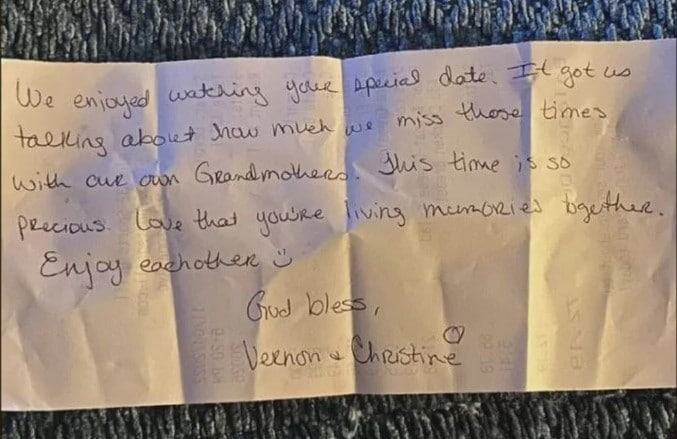 We enjoyed watching your special date. It got us
talking about how much we miss those times
with our own Grandmothers. This time is so
precious. Love that you're living memories together.
Enjoy eachother ☺
God bless,
Vernon & Christine ♡